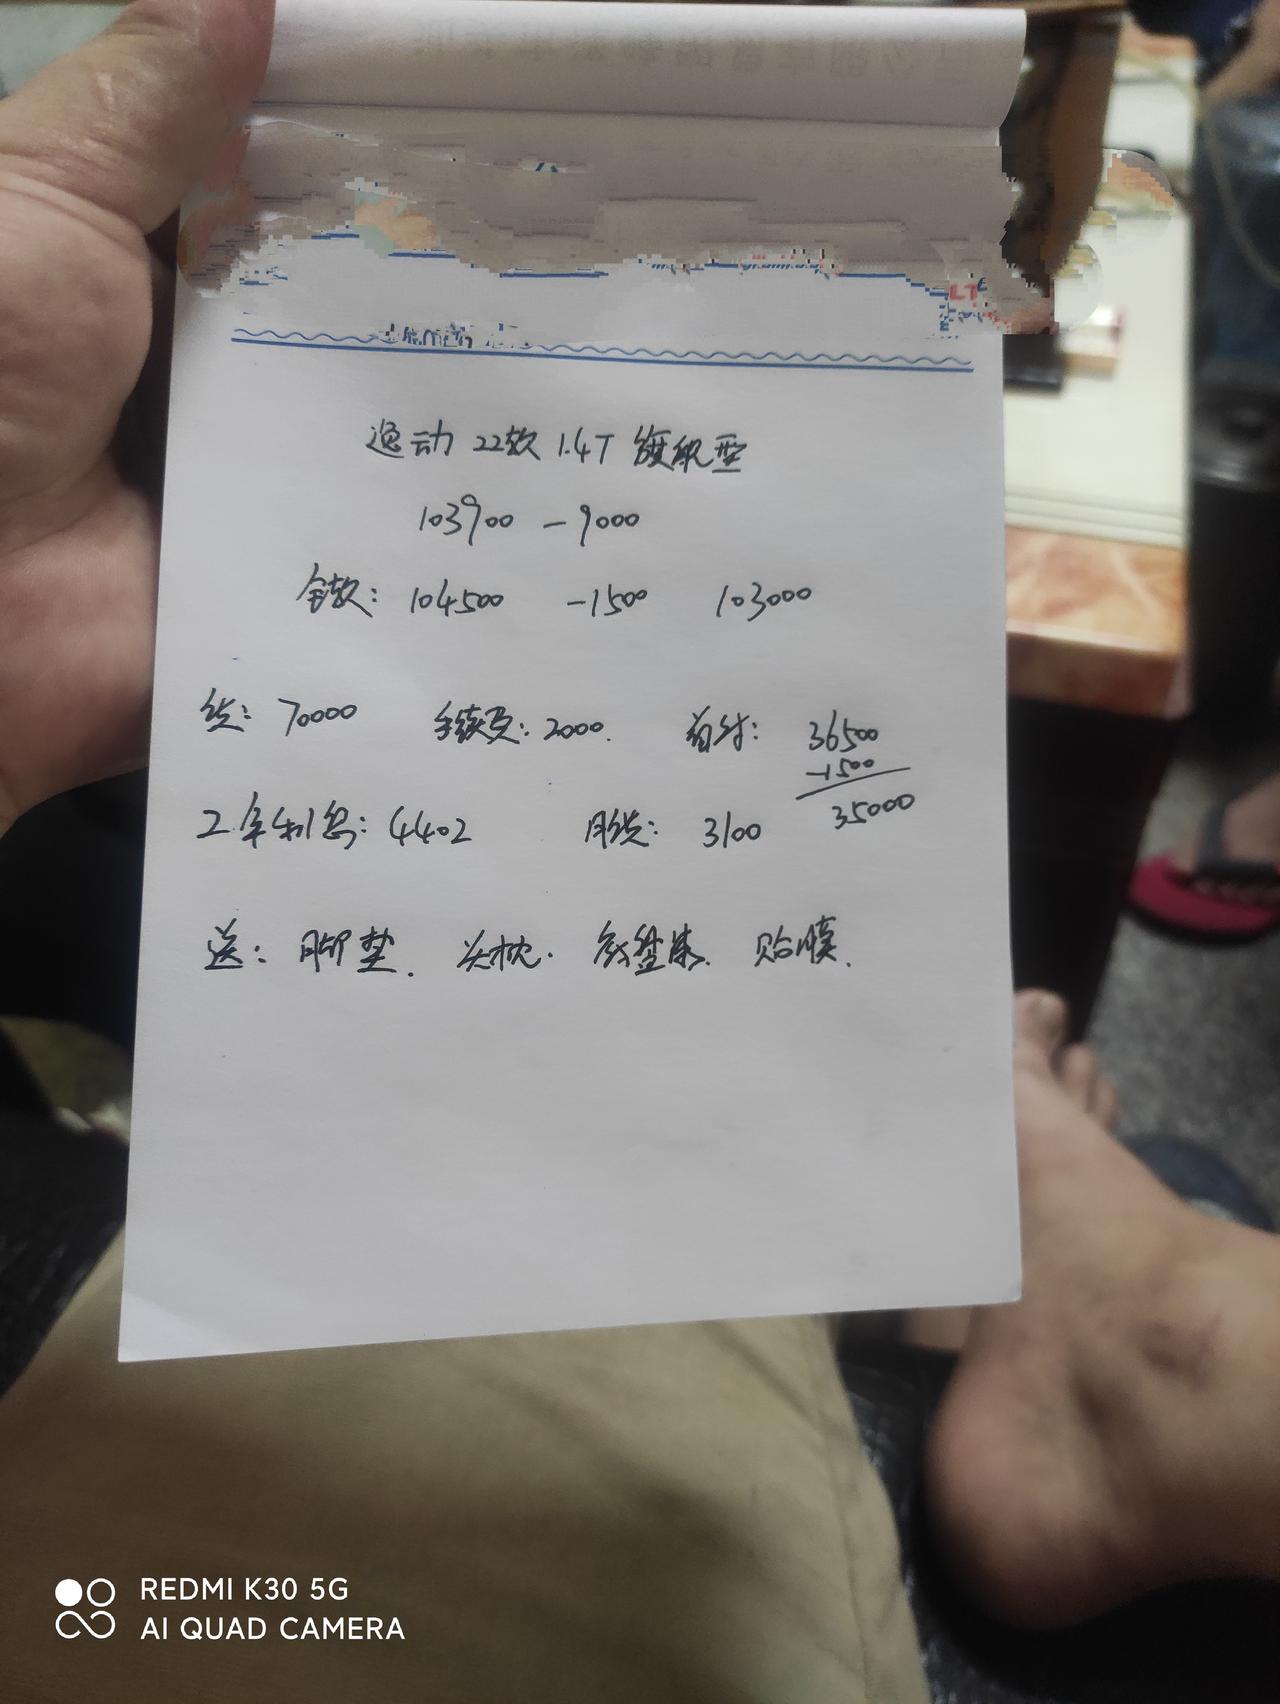 逸动 22款 1.4T 旗舰型
103900 -9000
全款: 104500 -1500 103000
贷: 70000 手续费: 2000. 首付: 36500
-1500
35000
2年利息: 4402 月供: 3100
送: 脚垫. 头枕. 底盘漆. 贴膜.
REDMI K30 5G
AI QUAD CAMERA